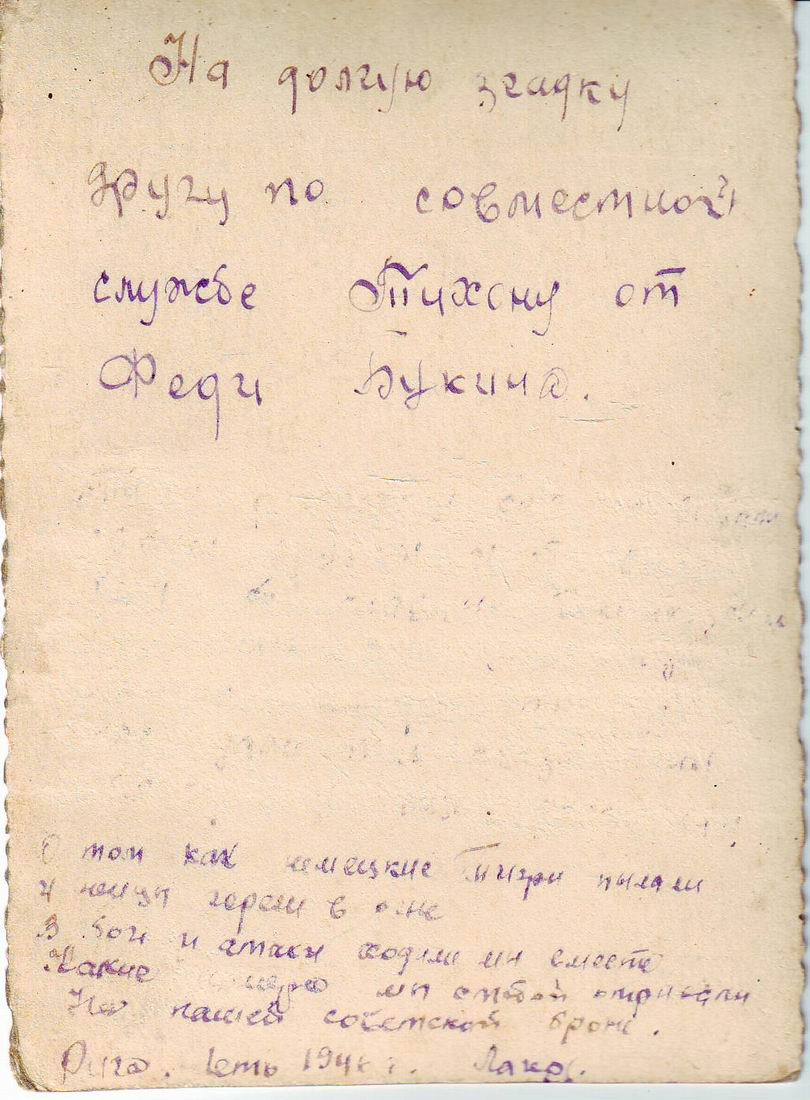 На долгую згадку
другу по совместной
службе Тихону от
Феди Букина.
О том как немецкие Тигри пылали
и горели в огне
В бои и атаки ходили ми вместе
Какие ми с тобой
На нашей советской броне.
Рига.